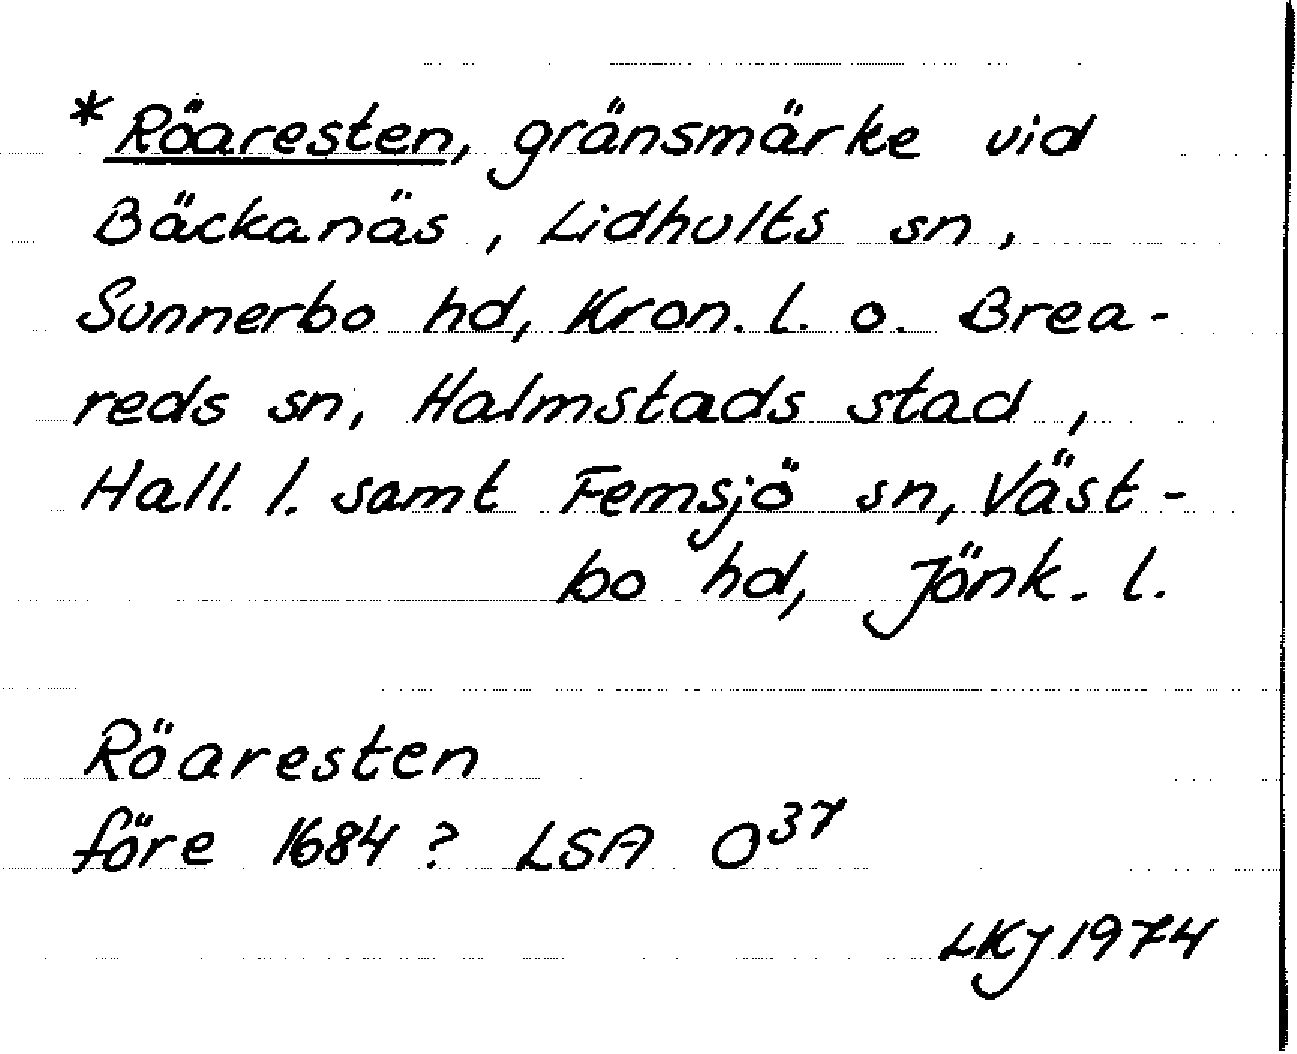 *Röaresten, gränsmärke vid
Bäckanäs, Lidhults sn,
Sunnerbo hd, Kron. l. o. Brea-
reds sn, Halmstads stad,
Hall. l. samt Femsjö sn, Väst-
bo hd, Jönk. l.
Röaresten
före 1684? LSA O37
LKJ 1974